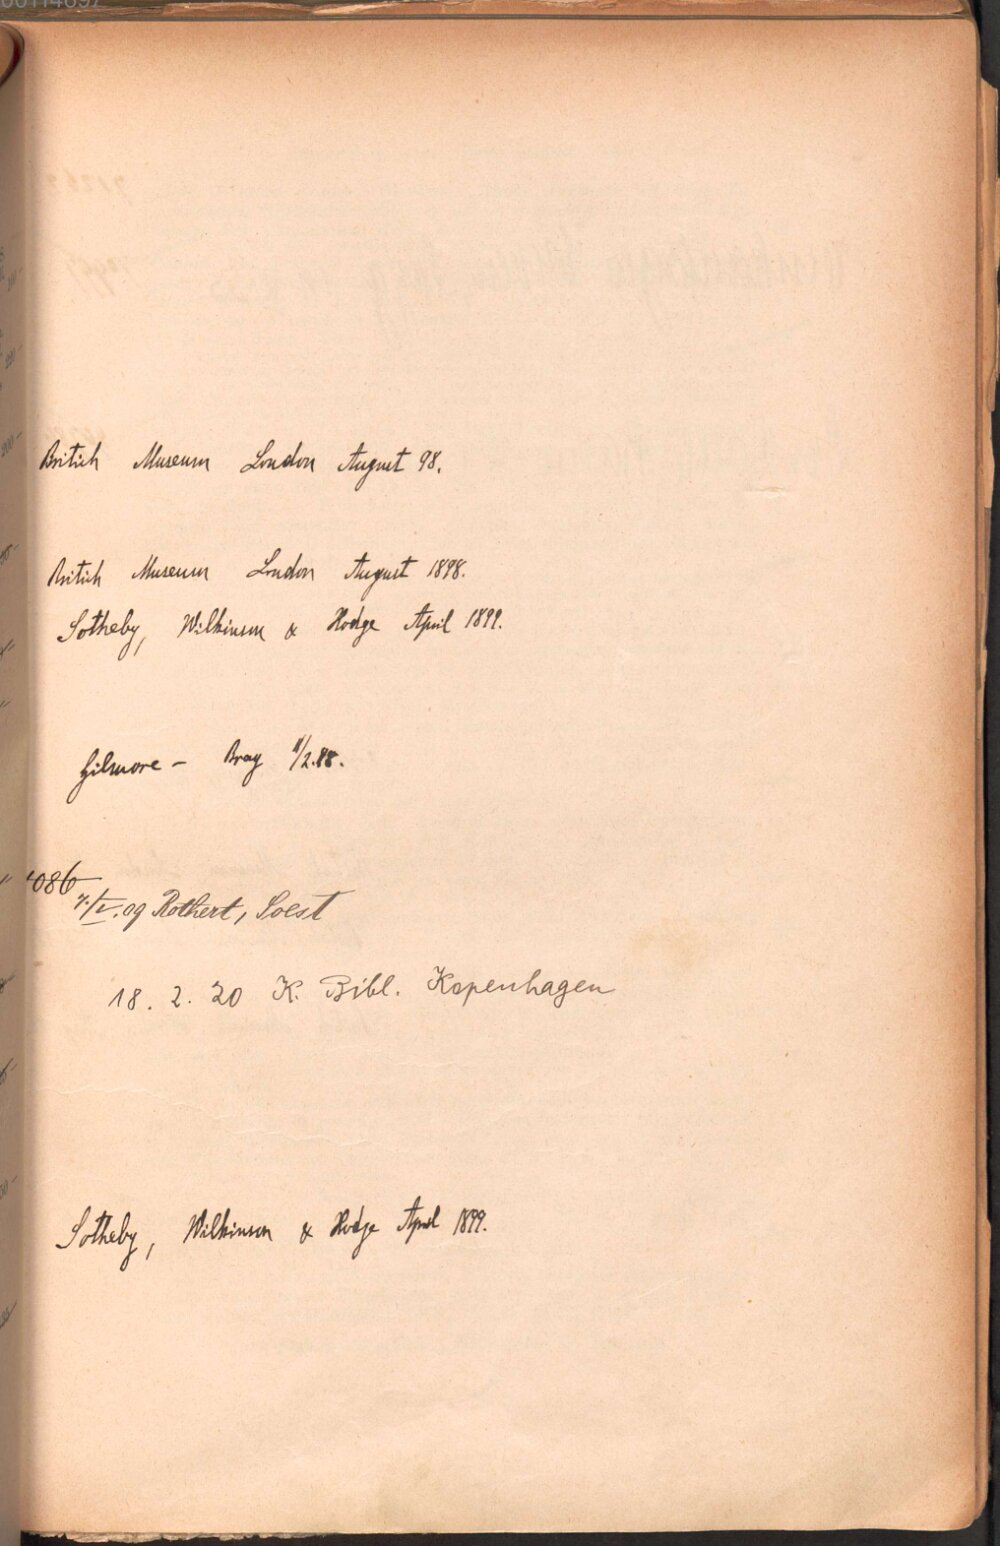 British Museum London August 98.
British Museum London August 1898.
Sotheby, Wilkinson & Hodge April 1899.
Gilmore – Bray /2.88.
4086
/V.09 Rothert, Soest
18. 2. 20 K. Bibl. Kopenhagen
Sotheby, Wilkinson & Hodge April 1899.